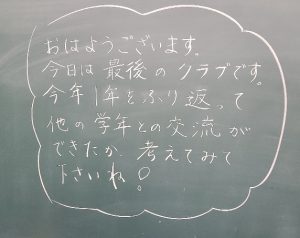 おはようございます。
今日は最後のクラブです。
今年1年をふり返って
他の学年との交流が
できたか、考えてみて
下さいね!